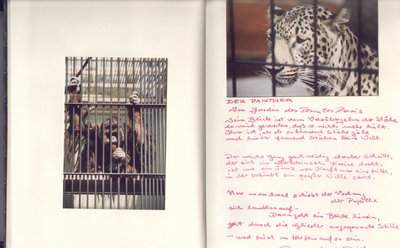 DER PANTHER
Im Jardin des Plantes Paris
Sein Blick ist vom Vorübergehn der Stäbe
so müd geworden, daß er nichts mehr hält.
Ihm ist, als ob es tausend Stäbe gäbe
und hinter tausend Stäben keine Welt.
Der weiche Gang geschmeidig starker Schritte,
der sich im allerkleinsten Kreise dreht,
ist wie ein Tanz von Kraft um eine Mitte,
in der betäubt ein großer Wille steht.
Nur manchmal schiebt der Vorhang
der Pupille
sich lautlos auf –.
Dann geht ein Bild hinein,
geht durch die Glieder angespannte Stille
– und hört im Herzen auf zu sein.